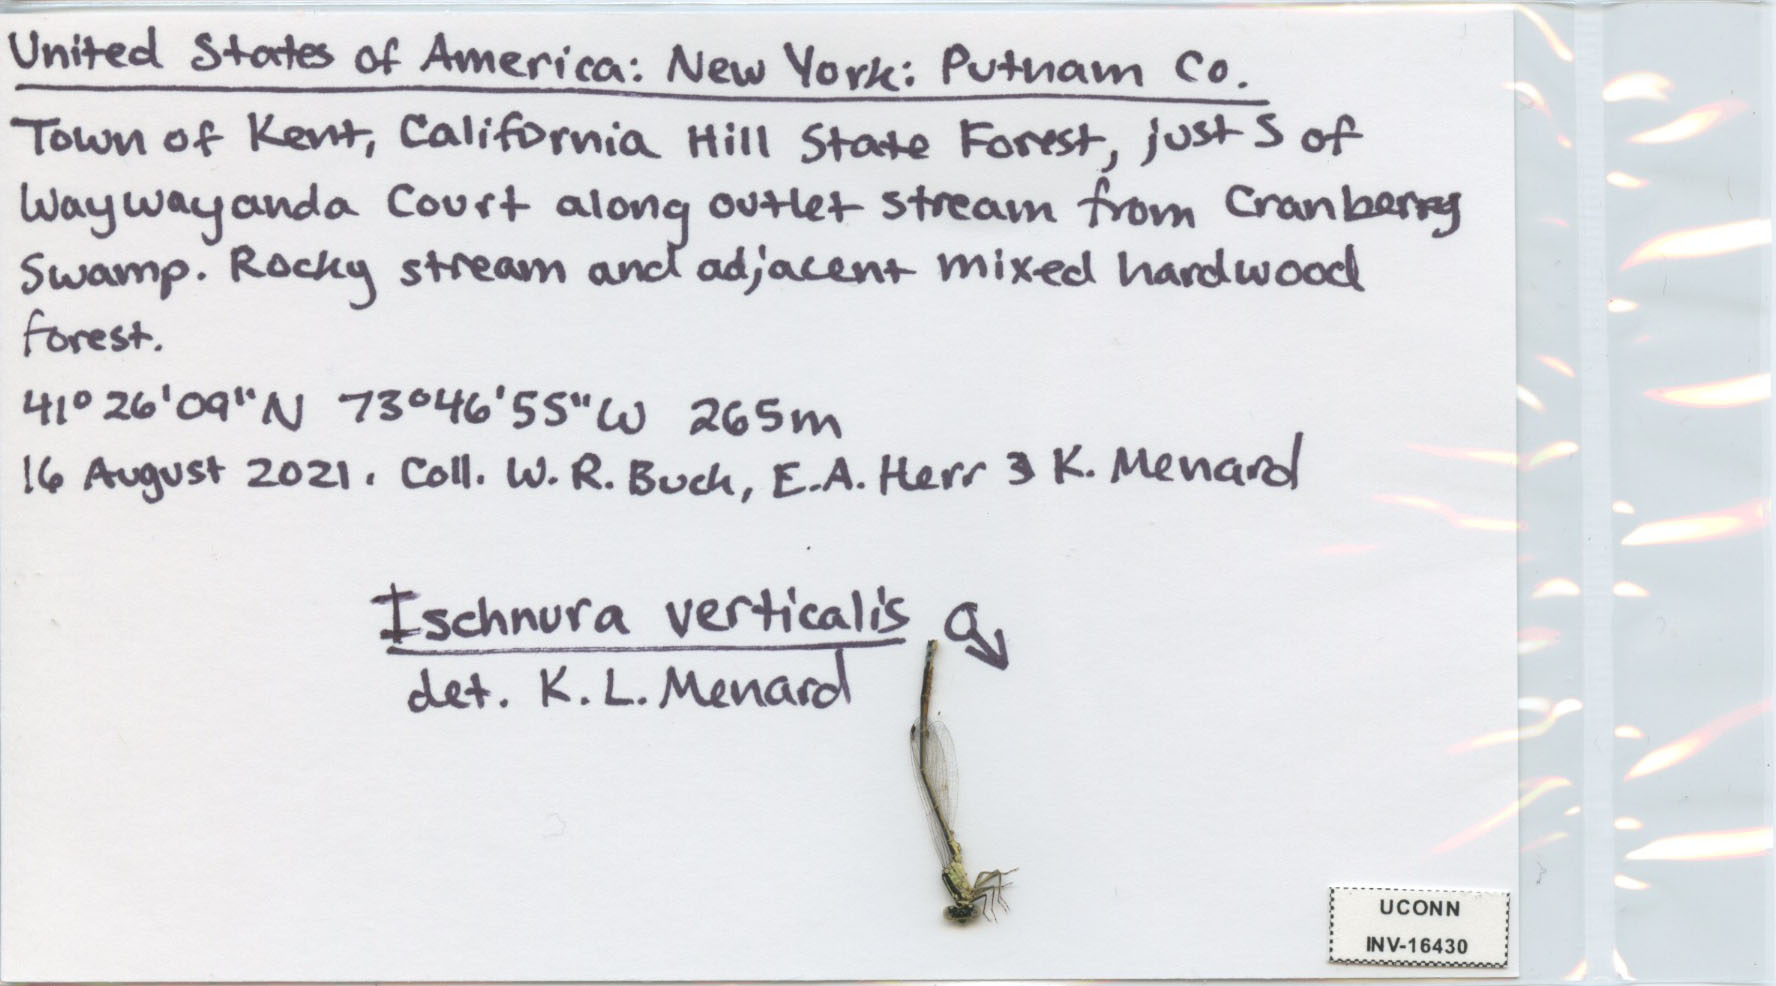 United States of America: New York: Putnam Co.
Town of Kent, California Hill State Forest, just S of
Waywayanda Court along outlet stream from Cranberry
Swamp. Rocky stream and adjacent mixed hardwood
forest.
41° 26' 09" N 73° 46' 55" W 265m
16 August 2021. Coll. W. R. Buck, E.A. Herr & K. Menard
Ischnura verticalis ♂
det. K. L. Menard
UCONN
INV-16430